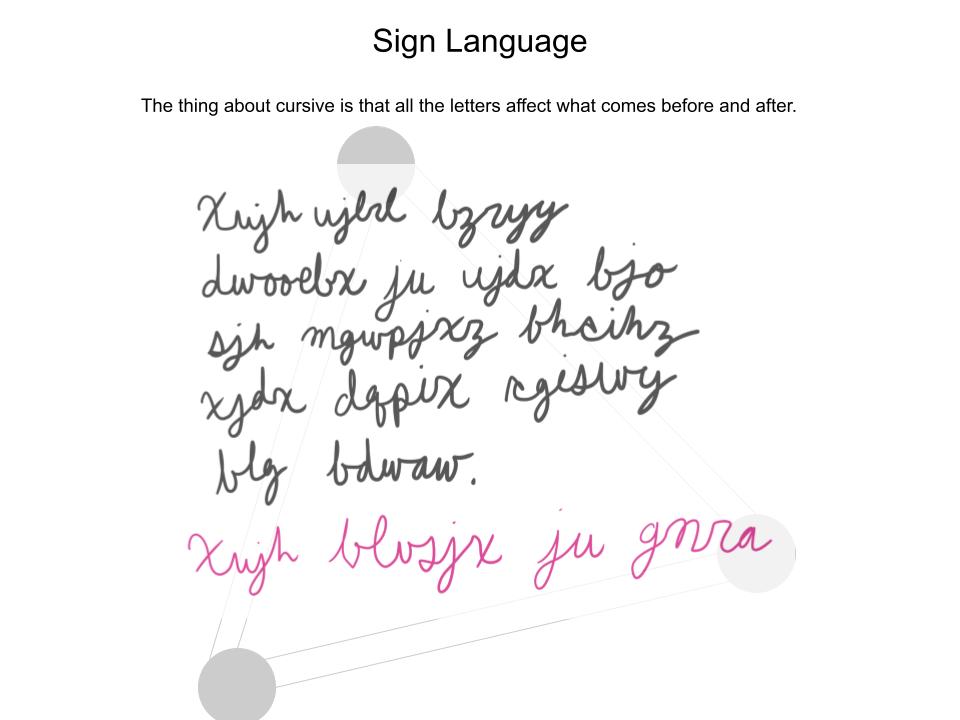 Sign Language
The thing about cursive is that all the letters affect what comes before and after.
Xujh ujbd bzryy
dwooebx ju ujdx bjo
sjh mgwpjxz bhcihz
xjdx dqpix rgiswy
blg bdwaw.
Xujh blvsjx ju gnra